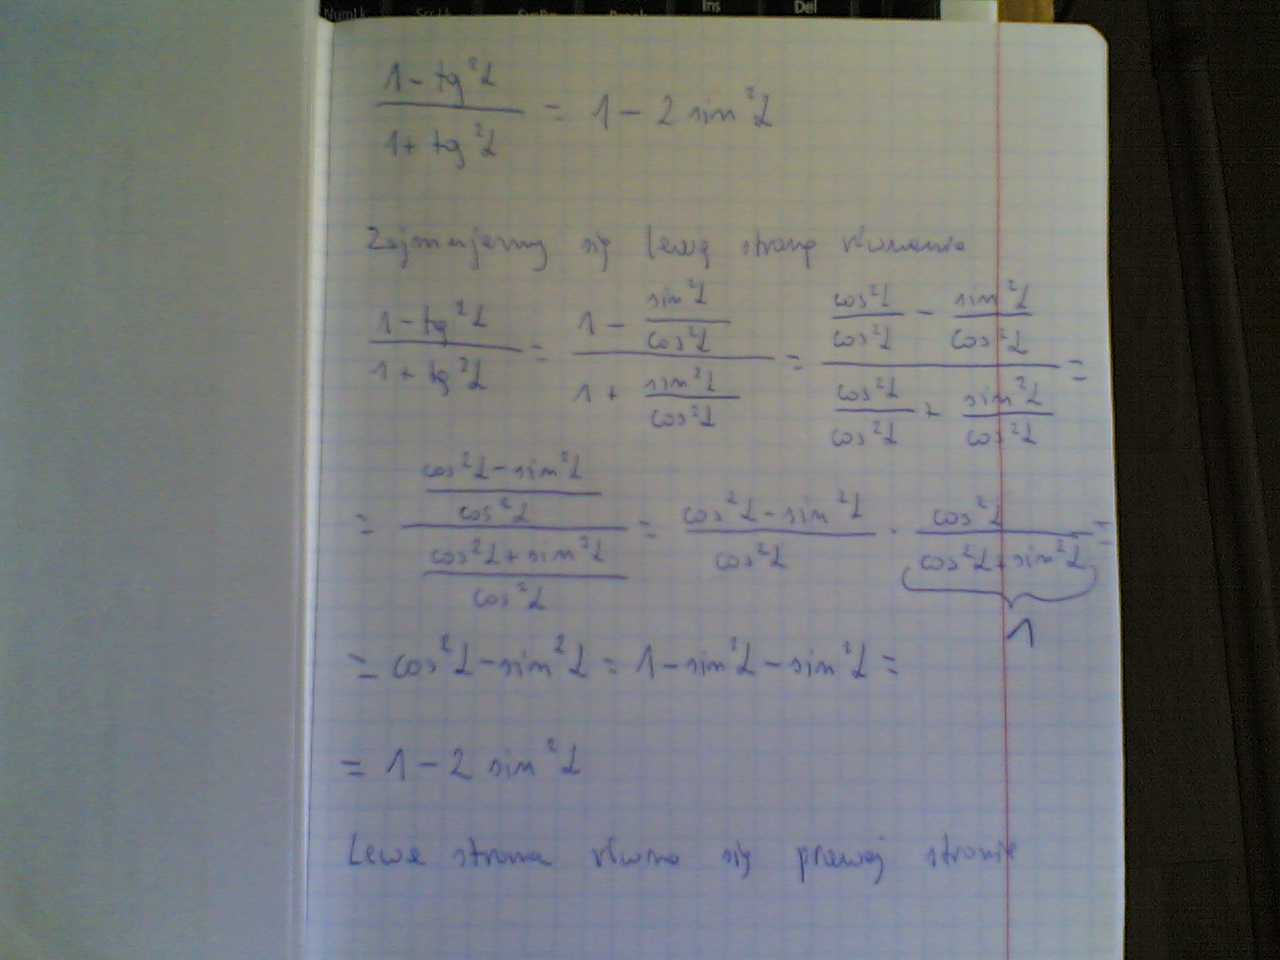 NumLk ScrLk Ins Del
(1 - tg²α)/(1 + tg²α) = 1 - 2 sin²α
Zajmujemy się lewą stroną równania
(1 - tg²α)/(1 + tg²α) = (1 - sin²α/cos²α)/(1 + sin²α/cos²α) = (cos²α/cos²α - sin²α/cos²α)/(cos²α/cos²α + sin²α/cos²α) =
= ((cos²α - sin²α)/cos²α)/((cos²α + sin²α)/cos²α) = (cos²α - sin²α)/cos²α · cos²α/(cos²α + sin²α) =
1
= cos²α - sin²α = 1 - sin²α - sin²α =
= 1 - 2 sin²α
Lewa strona równa się prawej stronie